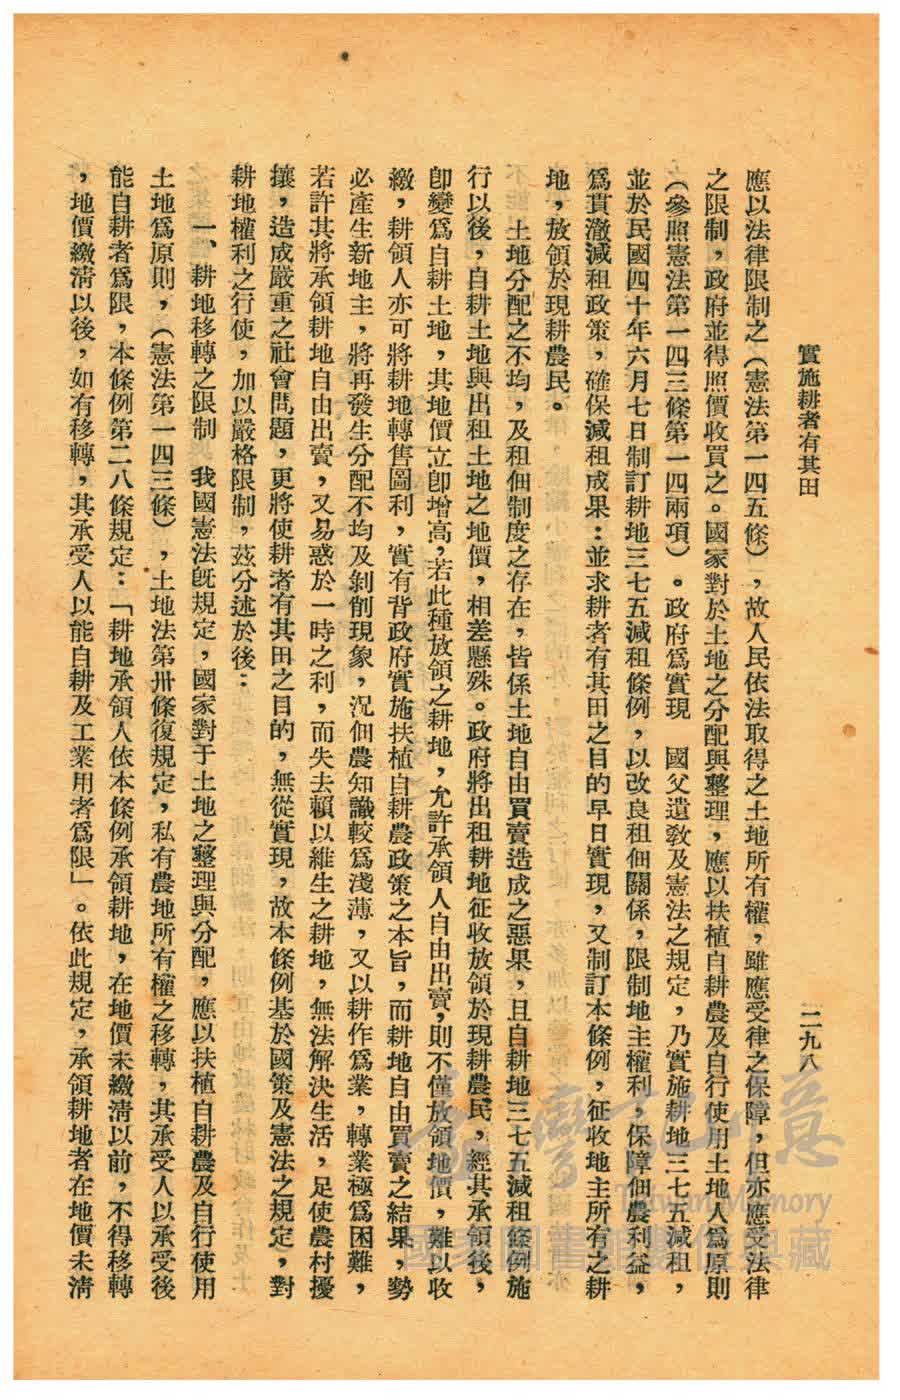 實施耕者有其田
二九八
應以法律限制之(憲法第一四五條),故人民依法取得之土地所有權,雖應受律之保障,但亦應受法律
之限制,政府並得照價收買之。國家對於土地之分配與整理,應以扶植自耕農及自行使用土地人爲原則
(參照憲法第一四三條第一四兩項)。政府爲實現 國父遺敎及憲法之規定,乃實施耕地三七五減租,
並於民國四十年六月七日制訂耕地三七五減租條例,以改良租佃關係,限制地主權利,保障佃農利益,
爲貫澈減租政策,確保減租成果:並求耕者有其田之目的早日實現,又制訂本條例,征收地主所有之耕
地,放領於現耕農民。
土地分配之不均,及租佃制度之存在,皆係土地自由買賣造成之惡果,且自耕地三七五減租條例施
行以後,自耕土地與出租土地之地價,相差懸殊。政府將出租耕地征收放領於現耕農民,經其承領後,
卽變爲自耕土地,其地價立卽增高,若此種放領之耕地,允許承領人自由出賣,則不僅放領地價,難以收
繳,耕領人亦可將耕地轉售圖利,實有背政府實施扶植自耕農政策之本旨,而耕地自由買賣之結果,勢
必產生新地主,將再發生分配不均及剝削現象,況佃農知識較爲淺薄,又以耕作爲業,轉業極爲困難,
若許其將承領耕地自由出賣,又易惑於一時之利,而失去賴以維生之耕地,無法解決生活,足使農村擾
攘,造成嚴重之社會問題,更將使耕者有其田之目的,無從實現,故本條例基於國策及憲法之規定,對
耕地權利之行使,加以嚴格限制,茲分述於後:
一、耕地移轉之限制 我國憲法旣規定,國家對于土地之整理與分配,應以扶植自耕農及自行使用
土地爲原則,(憲法第一四三條),土地法第卅條復規定,私有農地所有權之移轉,其承受人以承受後
能自耕者爲限,本條例第二八條規定:「耕地承領人依本條例承領耕地,在地價未繳淸以前,不得移轉
,地價繳淸以後,如有移轉,其承受人以能自耕及工業用者爲限」。依此規定,承領耕地者在地價未淸
臺灣記憶
Taiwan Memory
國家圖書館授權典藏